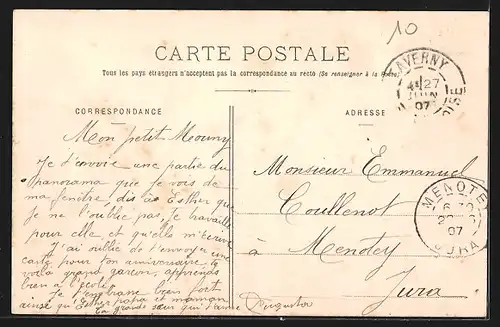 10
CARTE POSTALE
Tous les pays étrangers n'acceptent pas la correspondance au recto (Se renseigner à la Poste)
CORRESPONDANCE
Mon petit Mouny
Je t'envoie une partie du
panorama que je vois de
ma fenêtre, dis à Esther que
je ne l'oublie pas, je travaille
pour elle et qu'elle m'écrive
J'ai oublié de t'envoyer une
carte pour ton anniversaire te
voilà grand garçon, apprends
bien à l'école
Je t'embrasse bien fort
ainsi qu'Esther papa et maman
ta grande sœur qui t'aime
Augusta
ADRESSE
Monsieur Emmanuel
Coullenot
à Menotey
Jura
TAVERNY
27
JUIN
07
OISE
MENOTEY
6
07
JURA